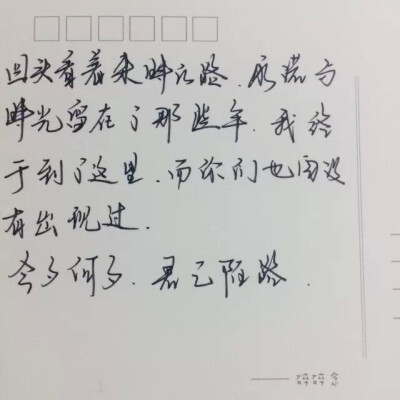 回头看着来时的路.承诺与
时光留在了那些年.我终
于到了这里.而你们也没
有出现过.
今夕何夕.君已陌路.
——碎碎念